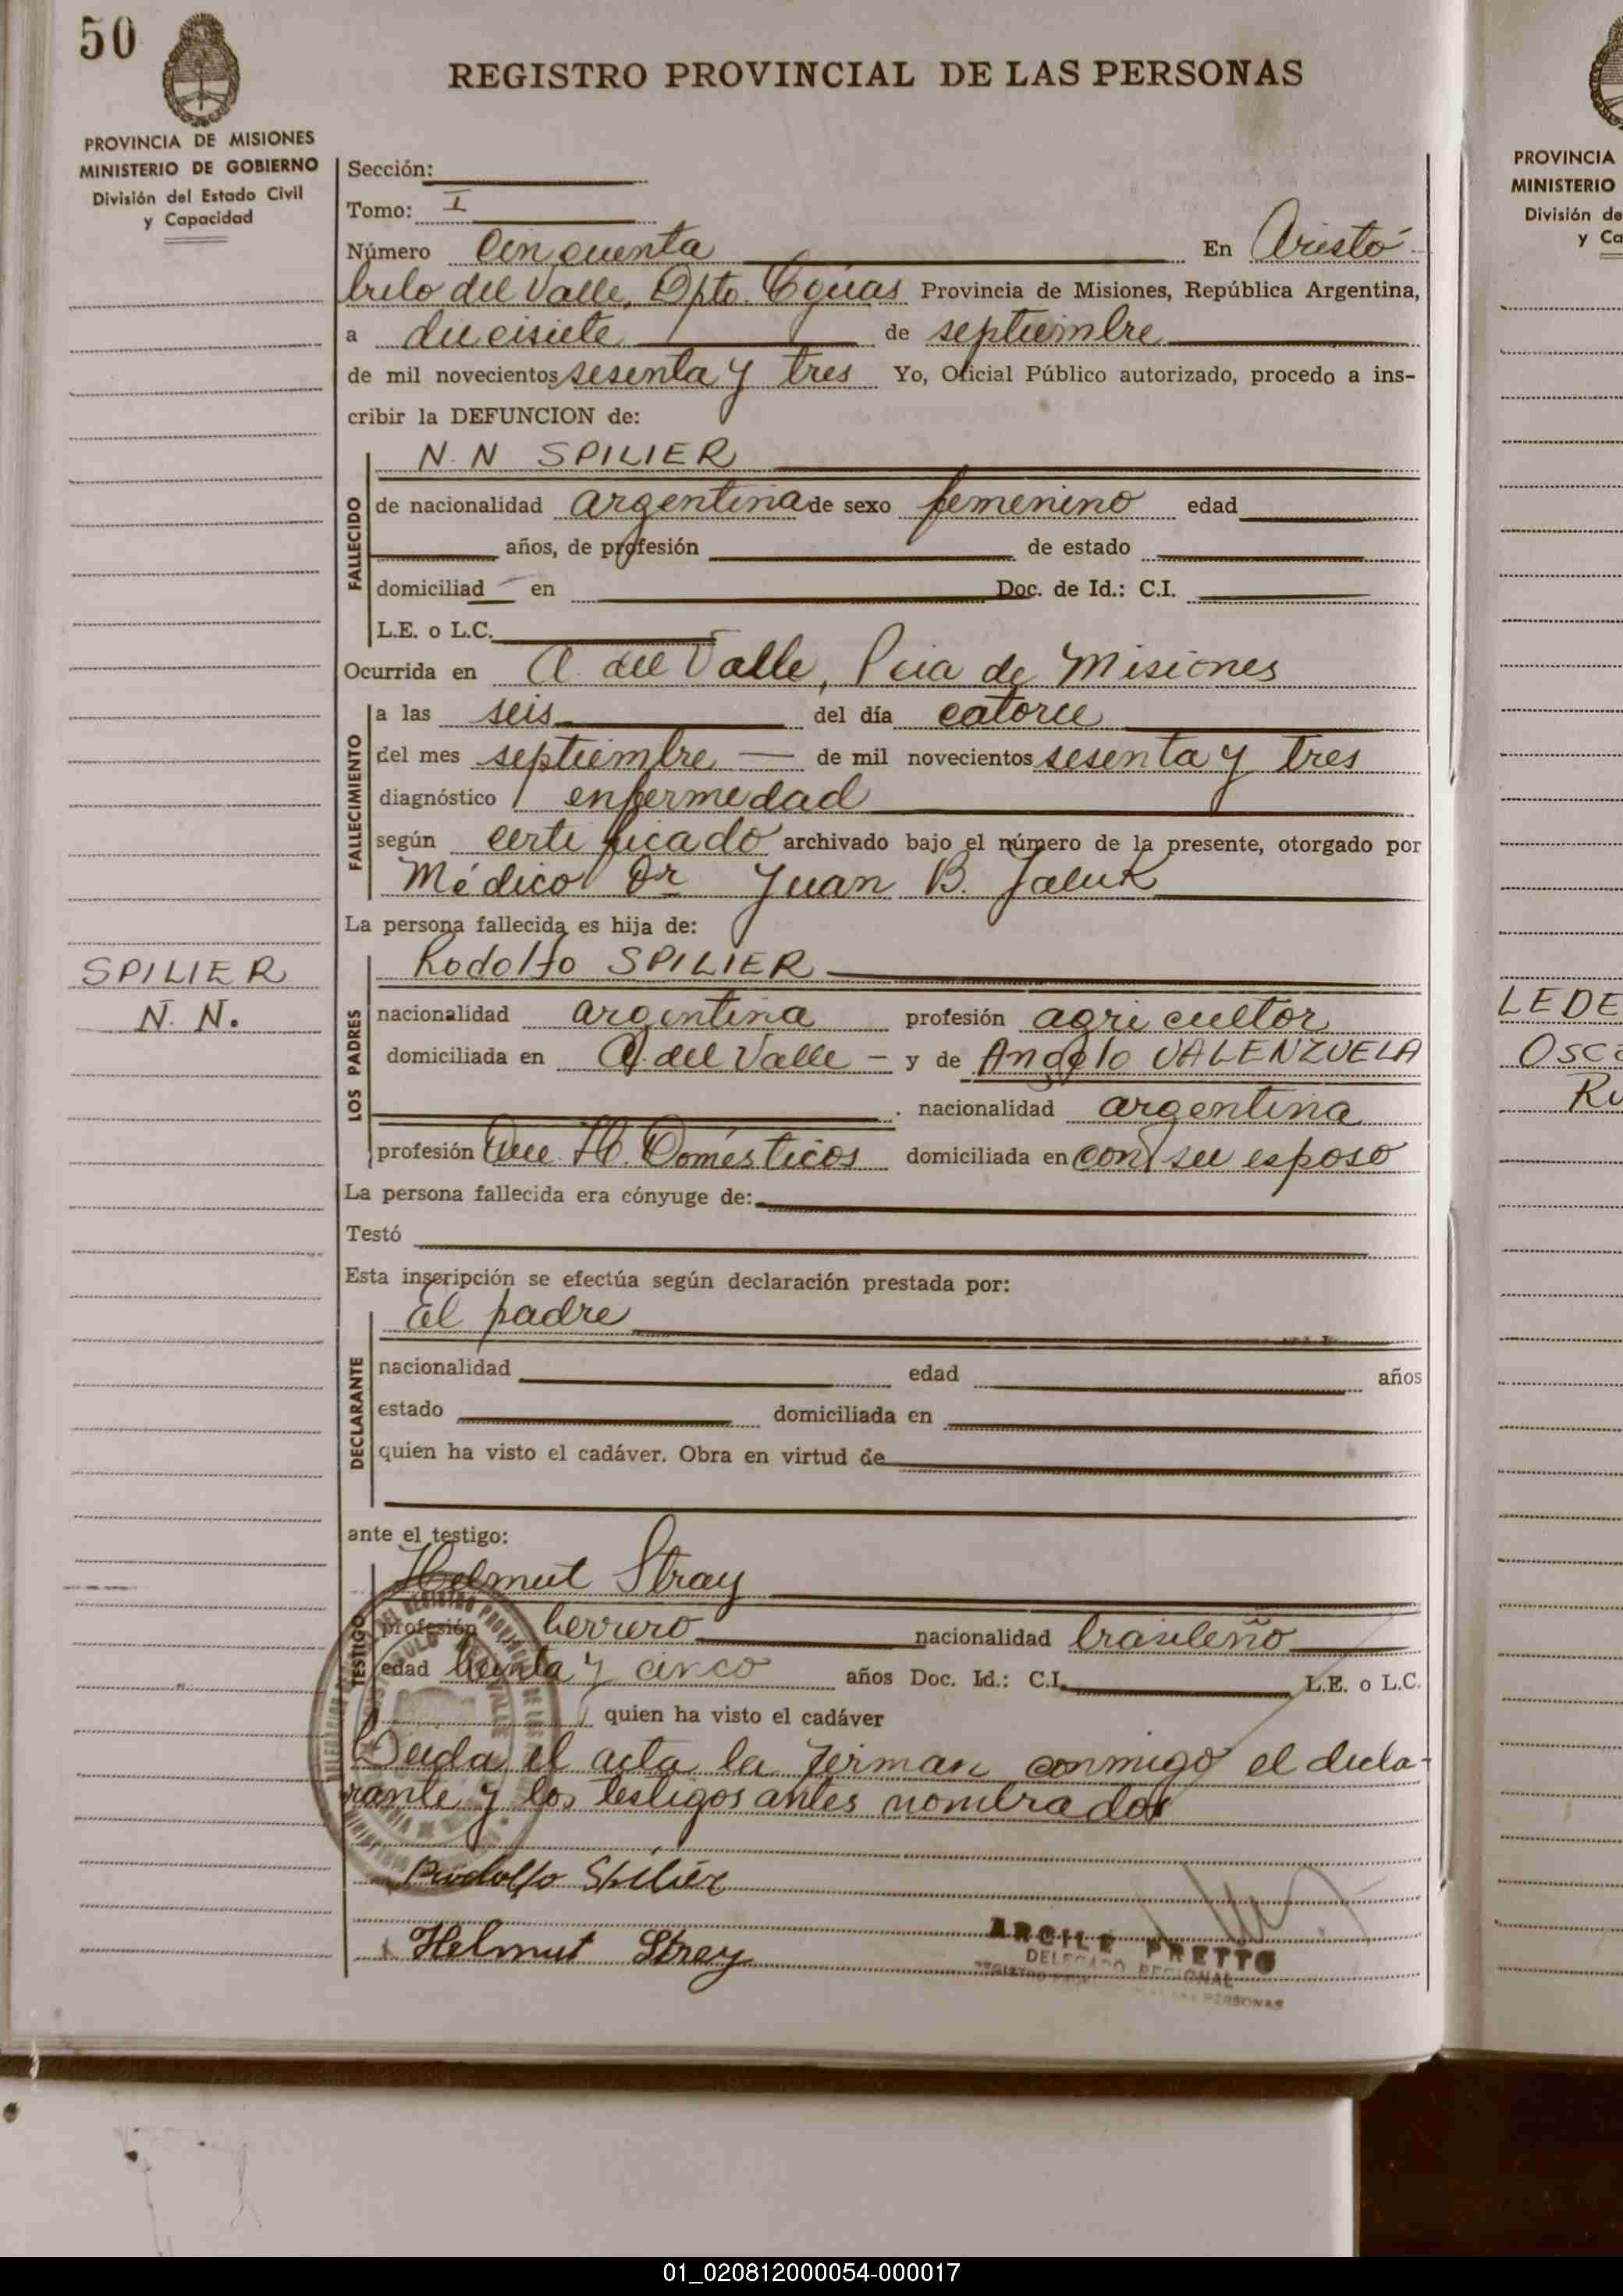 50
REGISTRO PROVINCIAL DE LAS PERSONAS
PROVINCIA DE MISIONES
MINISTERIO DE GOBIERNO
División del Estado Civil
y Capacidad
Sección:
Tomo: I
Número Cincuenta En Aristó
bulo del Valle, Dpto. Cguas Provincia de Misiones, República Argentina,
a diecisiete de septiembre
de mil novecientos sesenta y tres Yo, Oficial Público autorizado, procedo a ins-
cribir la DEFUNCION de:
N. N SPILIER
FALLECIDO
de nacionalidad argentina de sexo femenino edad
años, de profesión de estado
domiciliad en Doc. de Id.: C.I.
L.E. o L.C.
Ocurrida en A. del Valle, Pcia de Misiones
FALLECIMIENTO
a las seis del día catorce
del mes septiembre — de mil novecientos sesenta y tres
diagnóstico enfermedad
según certificado archivado bajo el número de la presente, otorgado por
Médico Dr Juan B. Jaluk
La persona fallecida es hija de:
SPILIER
N. N.
LOS PADRES
Rodolfo SPILIER
nacionalidad argentina profesión agricultor
domiciliada en A. del Valle - y de Angela VALENZUELA
nacionalidad argentina
profesión Que H. Domésticos domiciliada en con su esposo
La persona fallecida era cónyuge de:
Testó
Esta inscripción se efectúa según declaración prestada por:
DECLARANTE
El padre
nacionalidad edad años
estado domiciliada en
quien ha visto el cadáver. Obra en virtud de
ante el testigo:
TESTIGO
Helmut Stray
profesión herrero nacionalidad brasileño
edad treinta y cinco años Doc. Id.: C.I. L.E. o L.C.
quien ha visto el cadáver
Leida el acta la firman conmigo el decla-
rante y los testigos antes nombrados
Rodolfo Spilier
Helmut Stray
ARGILE PRETTO
DELEGADO REGIONAL
PERSONAS
PROVINCIA
MINISTERIO
División de
y Ca
LEDE
OSCa
RU
01_020812000054-000017